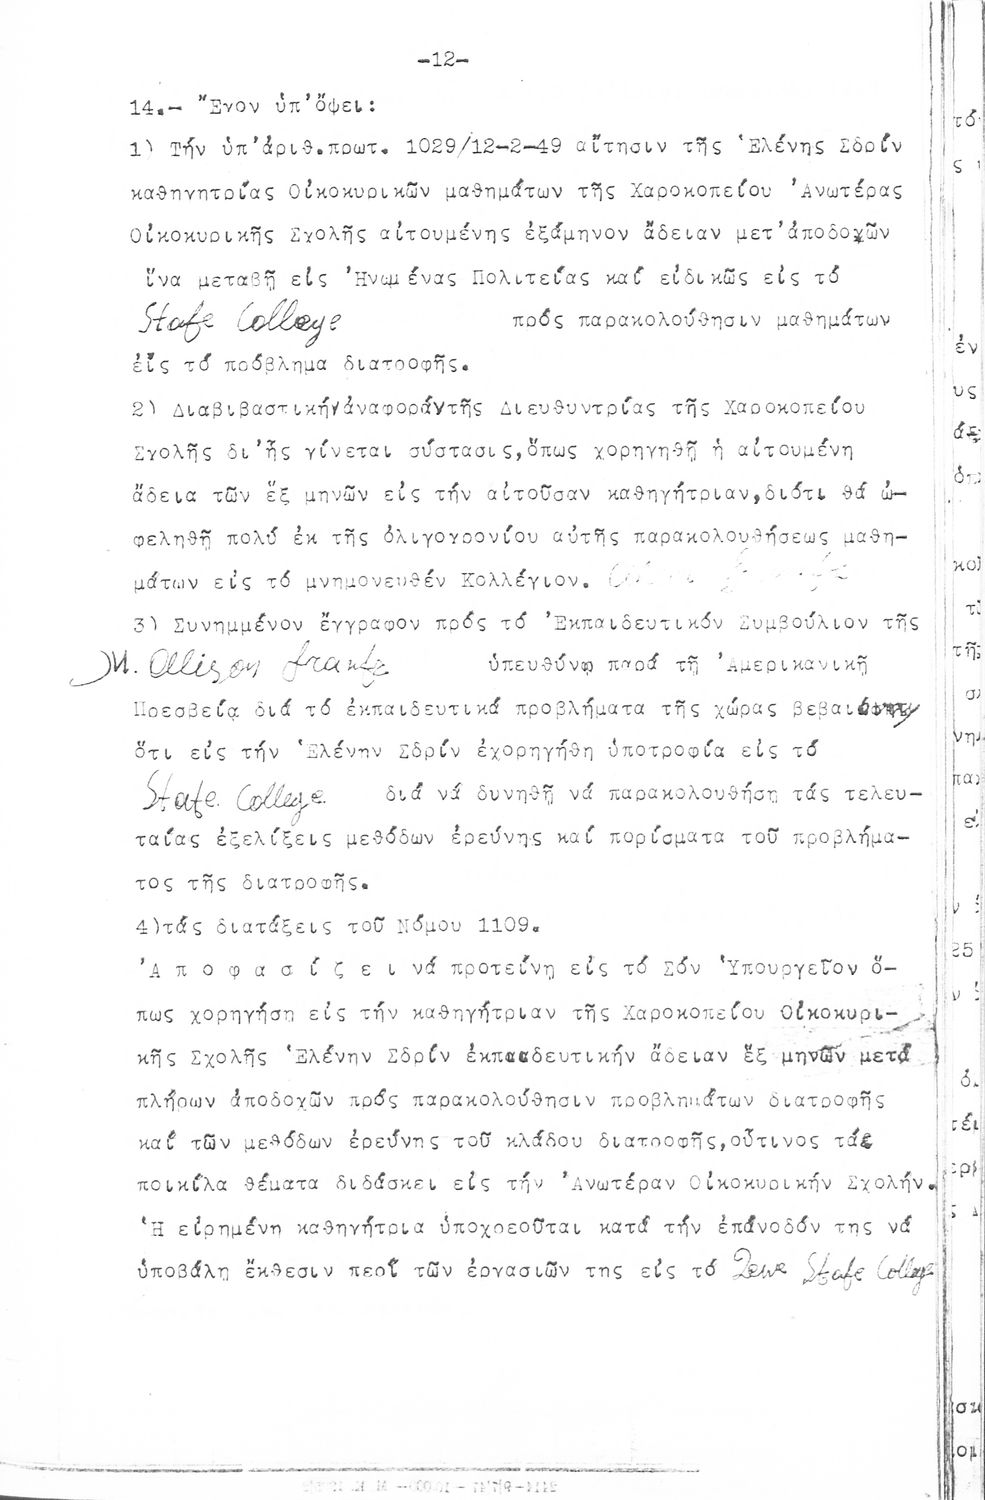 -12-
14.- Ἔχον ὑπ'ὄψει:
1) Τήν ὑπ'ἀριθ.πρωτ. 1029/12-2-49 αἴτησιν τῆς Ἑλένης Σδρίν
καθηγητρίας Οἰκοκυρικῶν μαθημάτων τῆς Χαροκοπείου Ἀνωτέρας
Οἰκοκυρικῆς Σχολῆς αἰτουμένης ἐξάμηνον ἄδειαν μετ'ἀποδοχῶν
ἵνα μεταβῇ εἰς Ἡνωμένας Πολιτείας καί εἰδικῶς εἰς τό
State College πρός παρακολούθησιν μαθημάτων
εἰς τό πρόβλημα διατροφῆς.
2) Διαβιβαστικήν ἀναφοράν τῆς Διευθυντρίας τῆς Χαροκοπείου
Σχολῆς δι'ἧς γίνεται σύστασις,ὅπως χορηγηθῇ ἡ αἰτουμένη
ἄδεια τῶν ἕξ μηνῶν εἰς τήν αἰτοῦσαν καθηγήτριαν,διότι θά ὠ-
φεληθῇ πολύ ἐκ τῆς ὀλιγοχρονίου αὐτῆς παρακολουθήσεως μαθη-
μάτων εἰς τό μνημονευθέν Κολλέγιον.
3) Συνημμένον ἔγγραφον πρός τό Ἐκπαιδευτικόν Συμβούλιον τῆς
M. Allison Frantz ὑπευθύνῳ παρά τῇ Ἀμερικανικῇ
Πρεσβείᾳ διά τό ἐκπαιδευτικά προβλήματα τῆς χώρας
ὅτι εἰς τήν Ἑλένην Σδρίν ἐχορηγήθη ὑποτροφία εἰς τό
State College διά νά δυνηθῇ νά παρακολουθήσῃ τάς τελευ-
ταίας ἐξελίξεις μεθόδων ἐρεύνης καί πορίσματα τοῦ προβλήμα-
τος τῆς διατροφῆς.
4)τάς διατάξεις τοῦ Νόμου 1109.
Ἀ π ο φ α σ ί ζ ε ι νά προτείνῃ εἰς τό Σόν Ὑπουργεῖον ὅ-
πως χορηγήσῃ εἰς τήν καθηγήτριαν τῆς Χαροκοπείου Οἰκοκυρι-
κῆς Σχολῆς Ἑλένην Σδρίν ἐκπαιδευτικήν ἄδειαν ἕξ μηνῶν μετά
πλήρων ἀποδοχῶν πρός παρακολούθησιν προβλημάτων διατροφῆς
καί τῶν μεθόδων ἐρεύνης τοῦ κλάδου διατροφῆς,οὗτινος τά
ποικίλα θέματα διδάσκει εἰς τήν Ἀνωτέραν Οἰκοκυρικήν Σχολήν.
Ἡ εἰρημένη καθηγήτρια ὑποχρεοῦται κατά τήν ἐπάνοδόν της νά
ὑποβάλῃ ἔκθεσιν περί τῶν ἐργασιῶν της εἰς τό State College